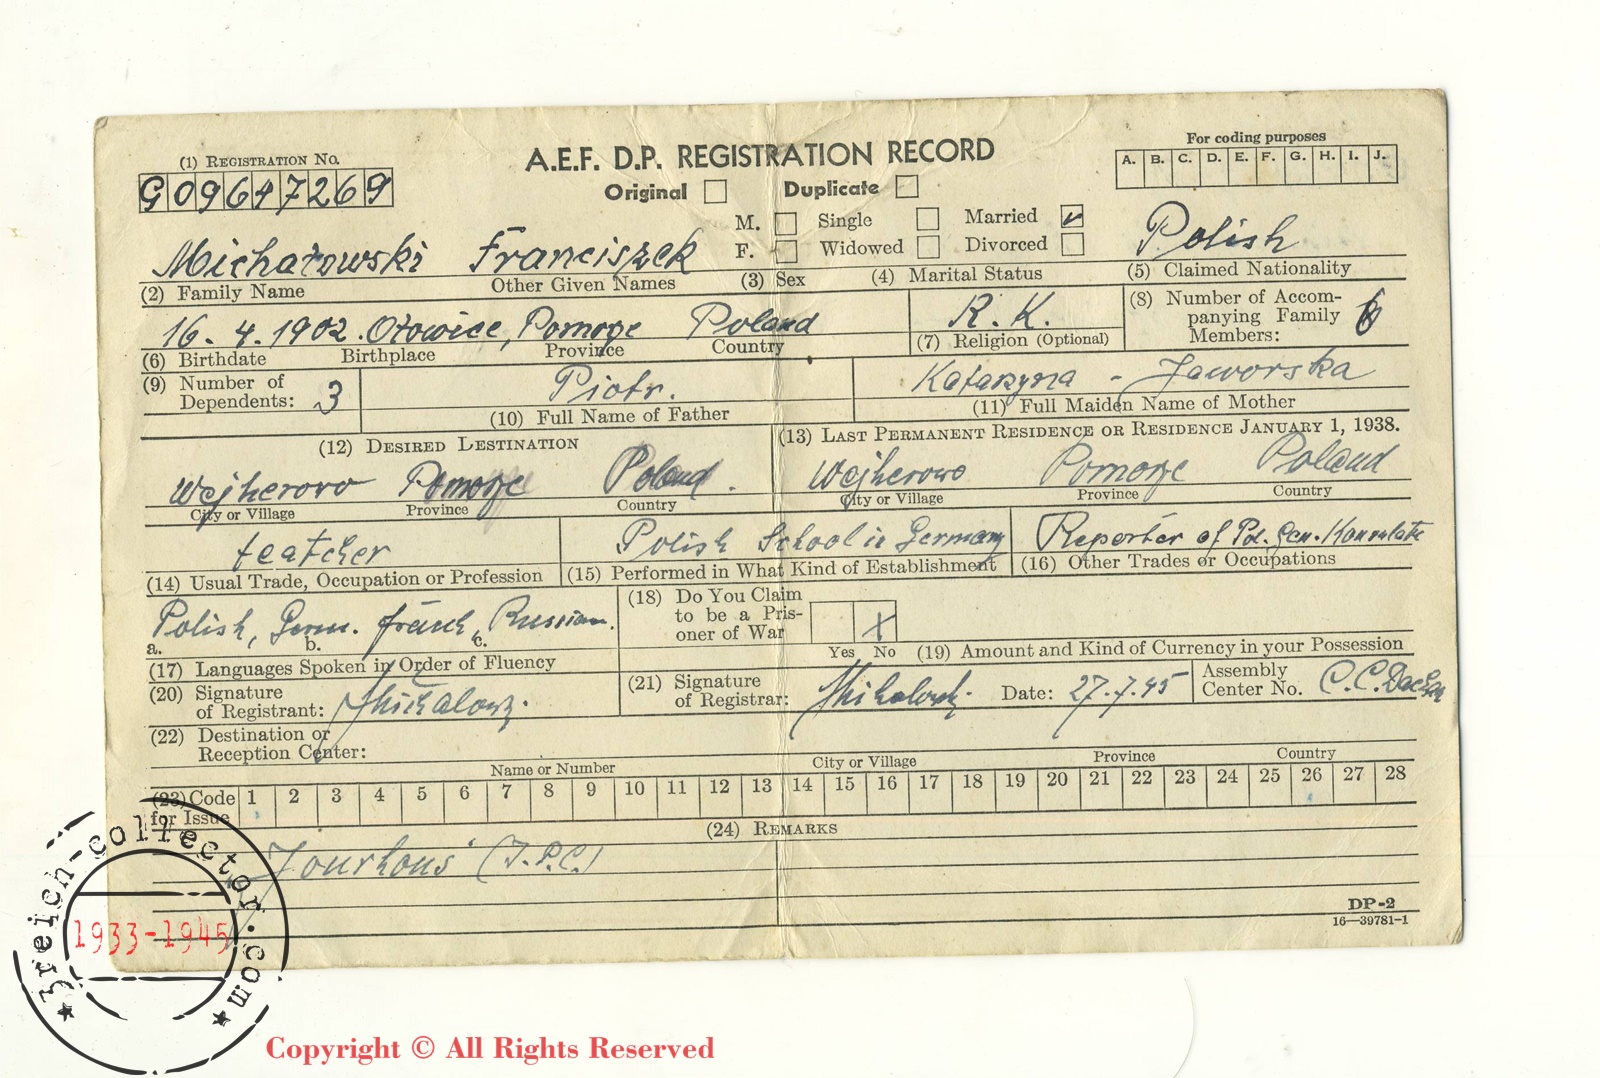 A.E.F. D.P. REGISTRATION RECORD
(1) REGISTRATION No.
G09647269
Original Duplicate
For coding purposes
A. B. C. D. E. F. G. H. I. J.
M. Single Married
F. Widowed Divorced
Michałowski Franciszek Polish
(2) Family Name Other Given Names (3) Sex (4) Marital Status (5) Claimed Nationality
16.4.1902. Otowice, Pomoże Poland R.K.
(6) Birthdate Birthplace Province Country (7) Religion (Optional)
(8) Number of Accom-
panying Family
Members: 6
(9) Number of
Dependents: 3
Piotr. Katarzyna - Jaworska
(10) Full Name of Father (11) Full Maiden Name of Mother
(12) DESIRED DESTINATION (13) LAST PERMANENT RESIDENCE OR RESIDENCE JANUARY 1, 1938.
Wejherovo Pomoże Poland. Wejherowo Pomoże Poland
City or Village Province Country City or Village Province Country
teatcher Polish School in Germany Reporter of Pol. Gen.
(14) Usual Trade, Occupation or Profession (15) Performed in What Kind of Establishment (16) Other Trades or Occupations
Polish, Germ. french, Russian.
a. b. c.
(17) Languages Spoken in Order of Fluency
(18) Do You Claim
to be a Pris-
oner of War
X
Yes No
(19) Amount and Kind of Currency in your Possession
(20) Signature
of Registrant:
(21) Signature
of Registrar:
Date: 27.7.45
Assembly
Center No. C.C. Dachau
(22) Destination or
Reception Center:
Name or Number City or Village Province Country
(23) Code
for Issue
1 2 3 4 5 6 7 8 9 10 11 12 13 14 15 16 17 18 19 20 21 22 23 24 25 26 27 28
(24) REMARKS
DP-2
16—39781-1
3reich-collector.com
1933-1945
Copyright © All Rights Reserved